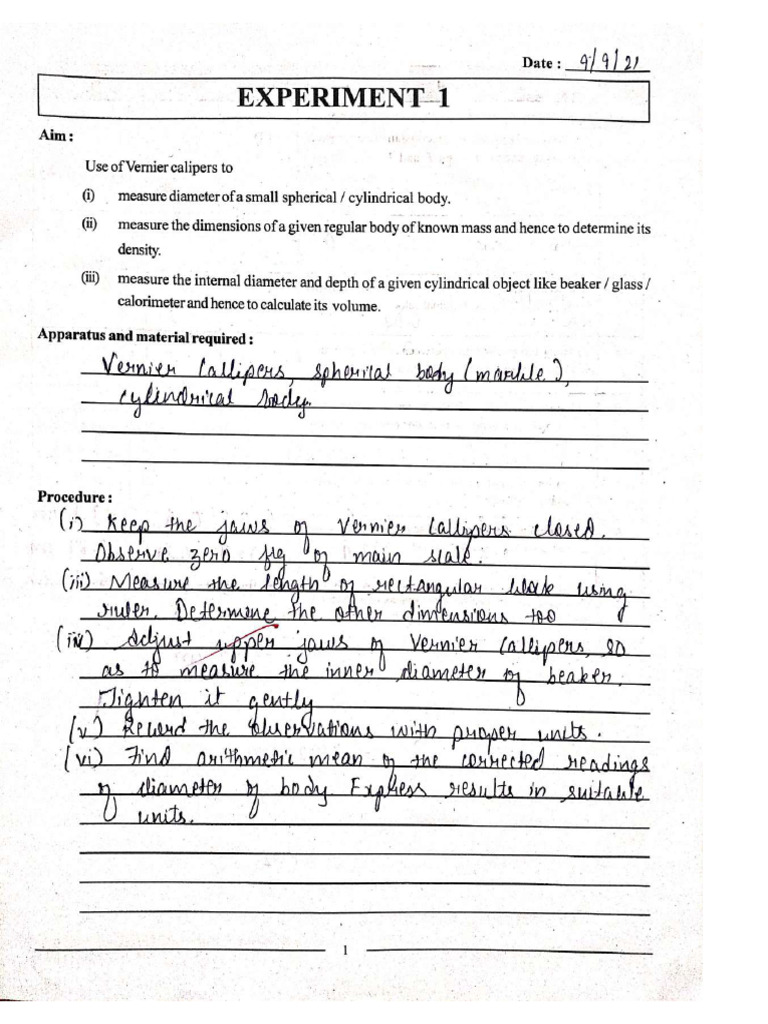 Date : 9/9/21
EXPERIMENT 1
Aim :
Use of Vernier calipers to
(i) measure diameter of a small spherical / cylindrical body.
(ii) measure the dimensions of a given regular body of known mass and hence to determine its
density.
(iii) measure the internal diameter and depth of a given cylindrical object like beaker / glass /
calorimeter and hence to calculate its volume.
Apparatus and material required :
Vernier Callipers, spherical body (marble),
cylindrical body.
Procedure :
(i) Keep the jaws of Vernier Callipers closed.
Observe zero fig of main scale.
(iii) Measure the length of rectangular block using
ruler. Determine the other dimensions too
(iv) Adjust upper jaws of Vernier Callipers, so
as to measure the inner diameter of beaker.
Tighten it gently
(v) Record the observations with proper units.
(vi) Find arithmetic mean of the corrected readings
of diameter of body Express results in suitable
units.
1